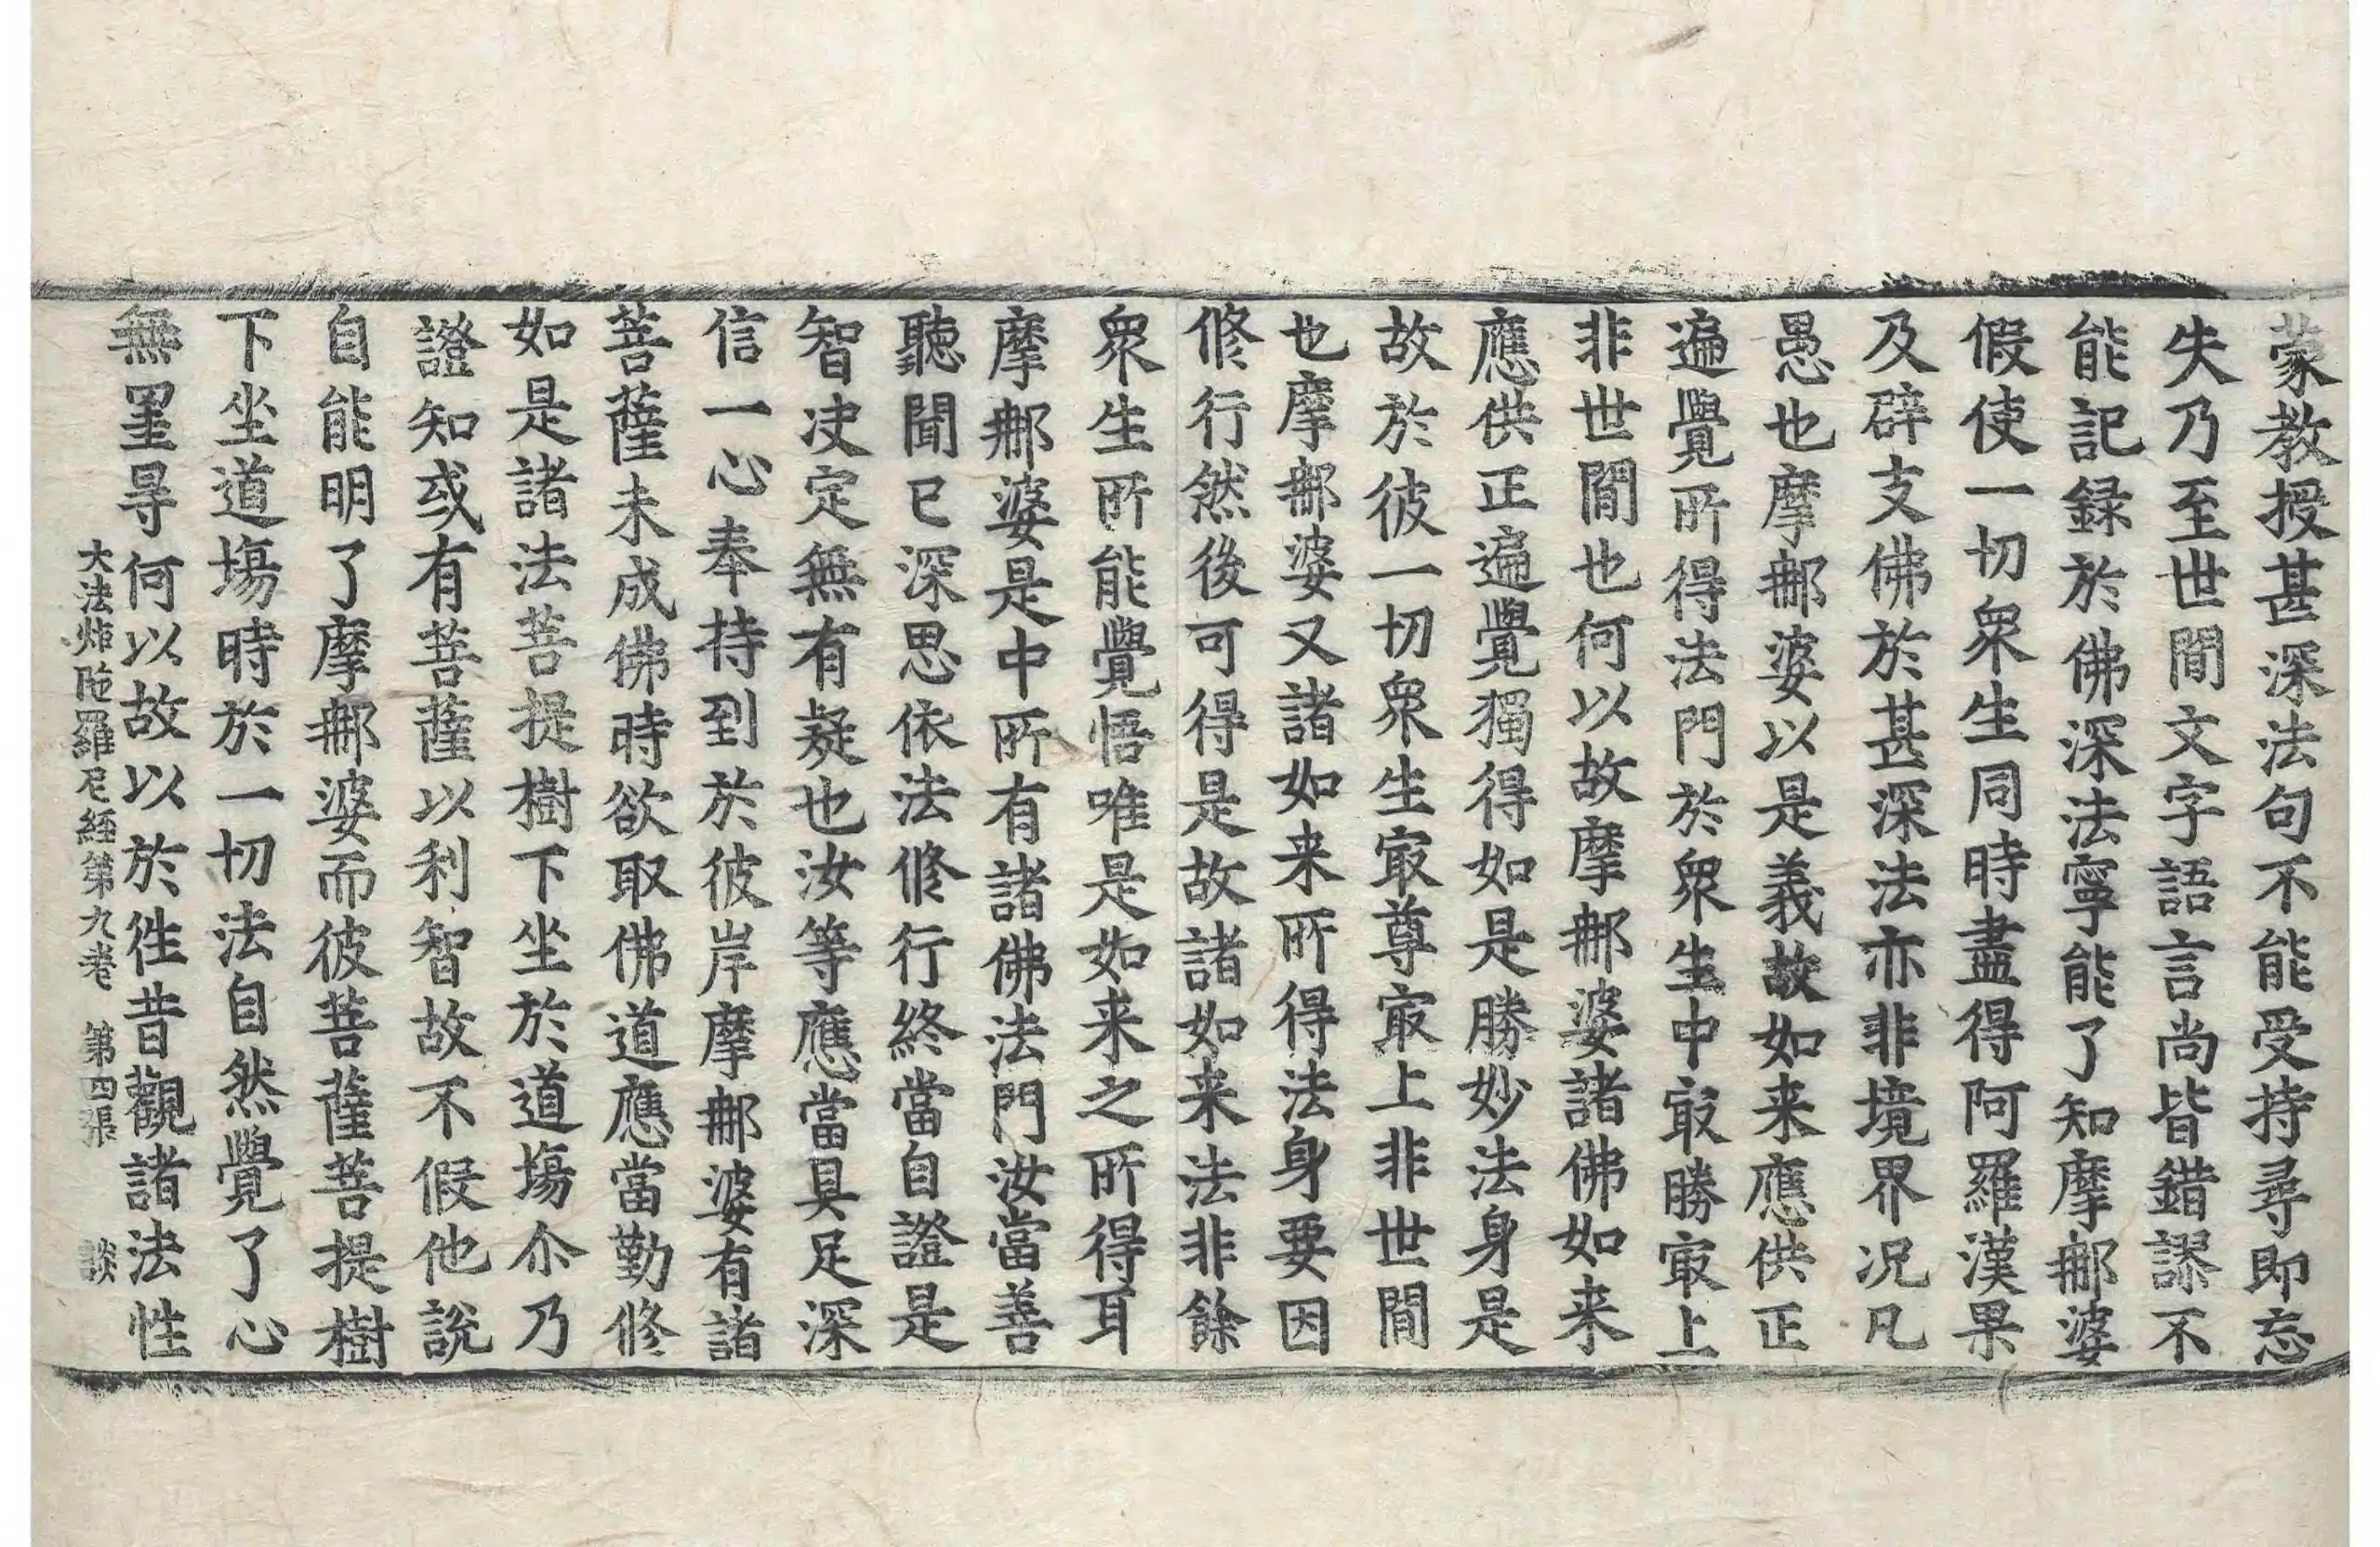 蒙教授甚深法句不能受持尋即忘
失乃至世間文字語言尚皆錯謬不
能記録於佛深法寧能了知摩郍婆
假使一切衆生同時盡得阿羅漢果
及辟支佛於甚深法亦非境界况凡
愚也摩郍婆以是義故如来應供正
遍覺所得法門於衆生中㝡勝㝡上
非世間也何以故摩郍婆諸佛如来
應供正遍覺獨得如是勝妙法身是
故於彼一切衆生㝡尊㝡上非世間
也摩郍婆又諸如来所得法身要因
修行然後可得是故諸如来法非餘
衆生所能覺悟唯是如来之所得耳
摩郍婆是中所有諸佛法門汝當善
聽聞已深思依法修行終當自證是
智决定無有疑也汝等應當具足深
信一心奉持到於彼岸摩郍婆有諸
菩薩未成佛時欲取佛道應當勤修
如是諸法菩提樹下坐於道塲尒乃
證知或有菩薩以利智故不假他說
自能明了摩郍婆而彼菩薩菩提樹
下坐道塲時於一切法自然覺了心
無罣㝵何以故以於徃昔觀諸法性
大法炬陁羅尼經第九卷　第四張　談